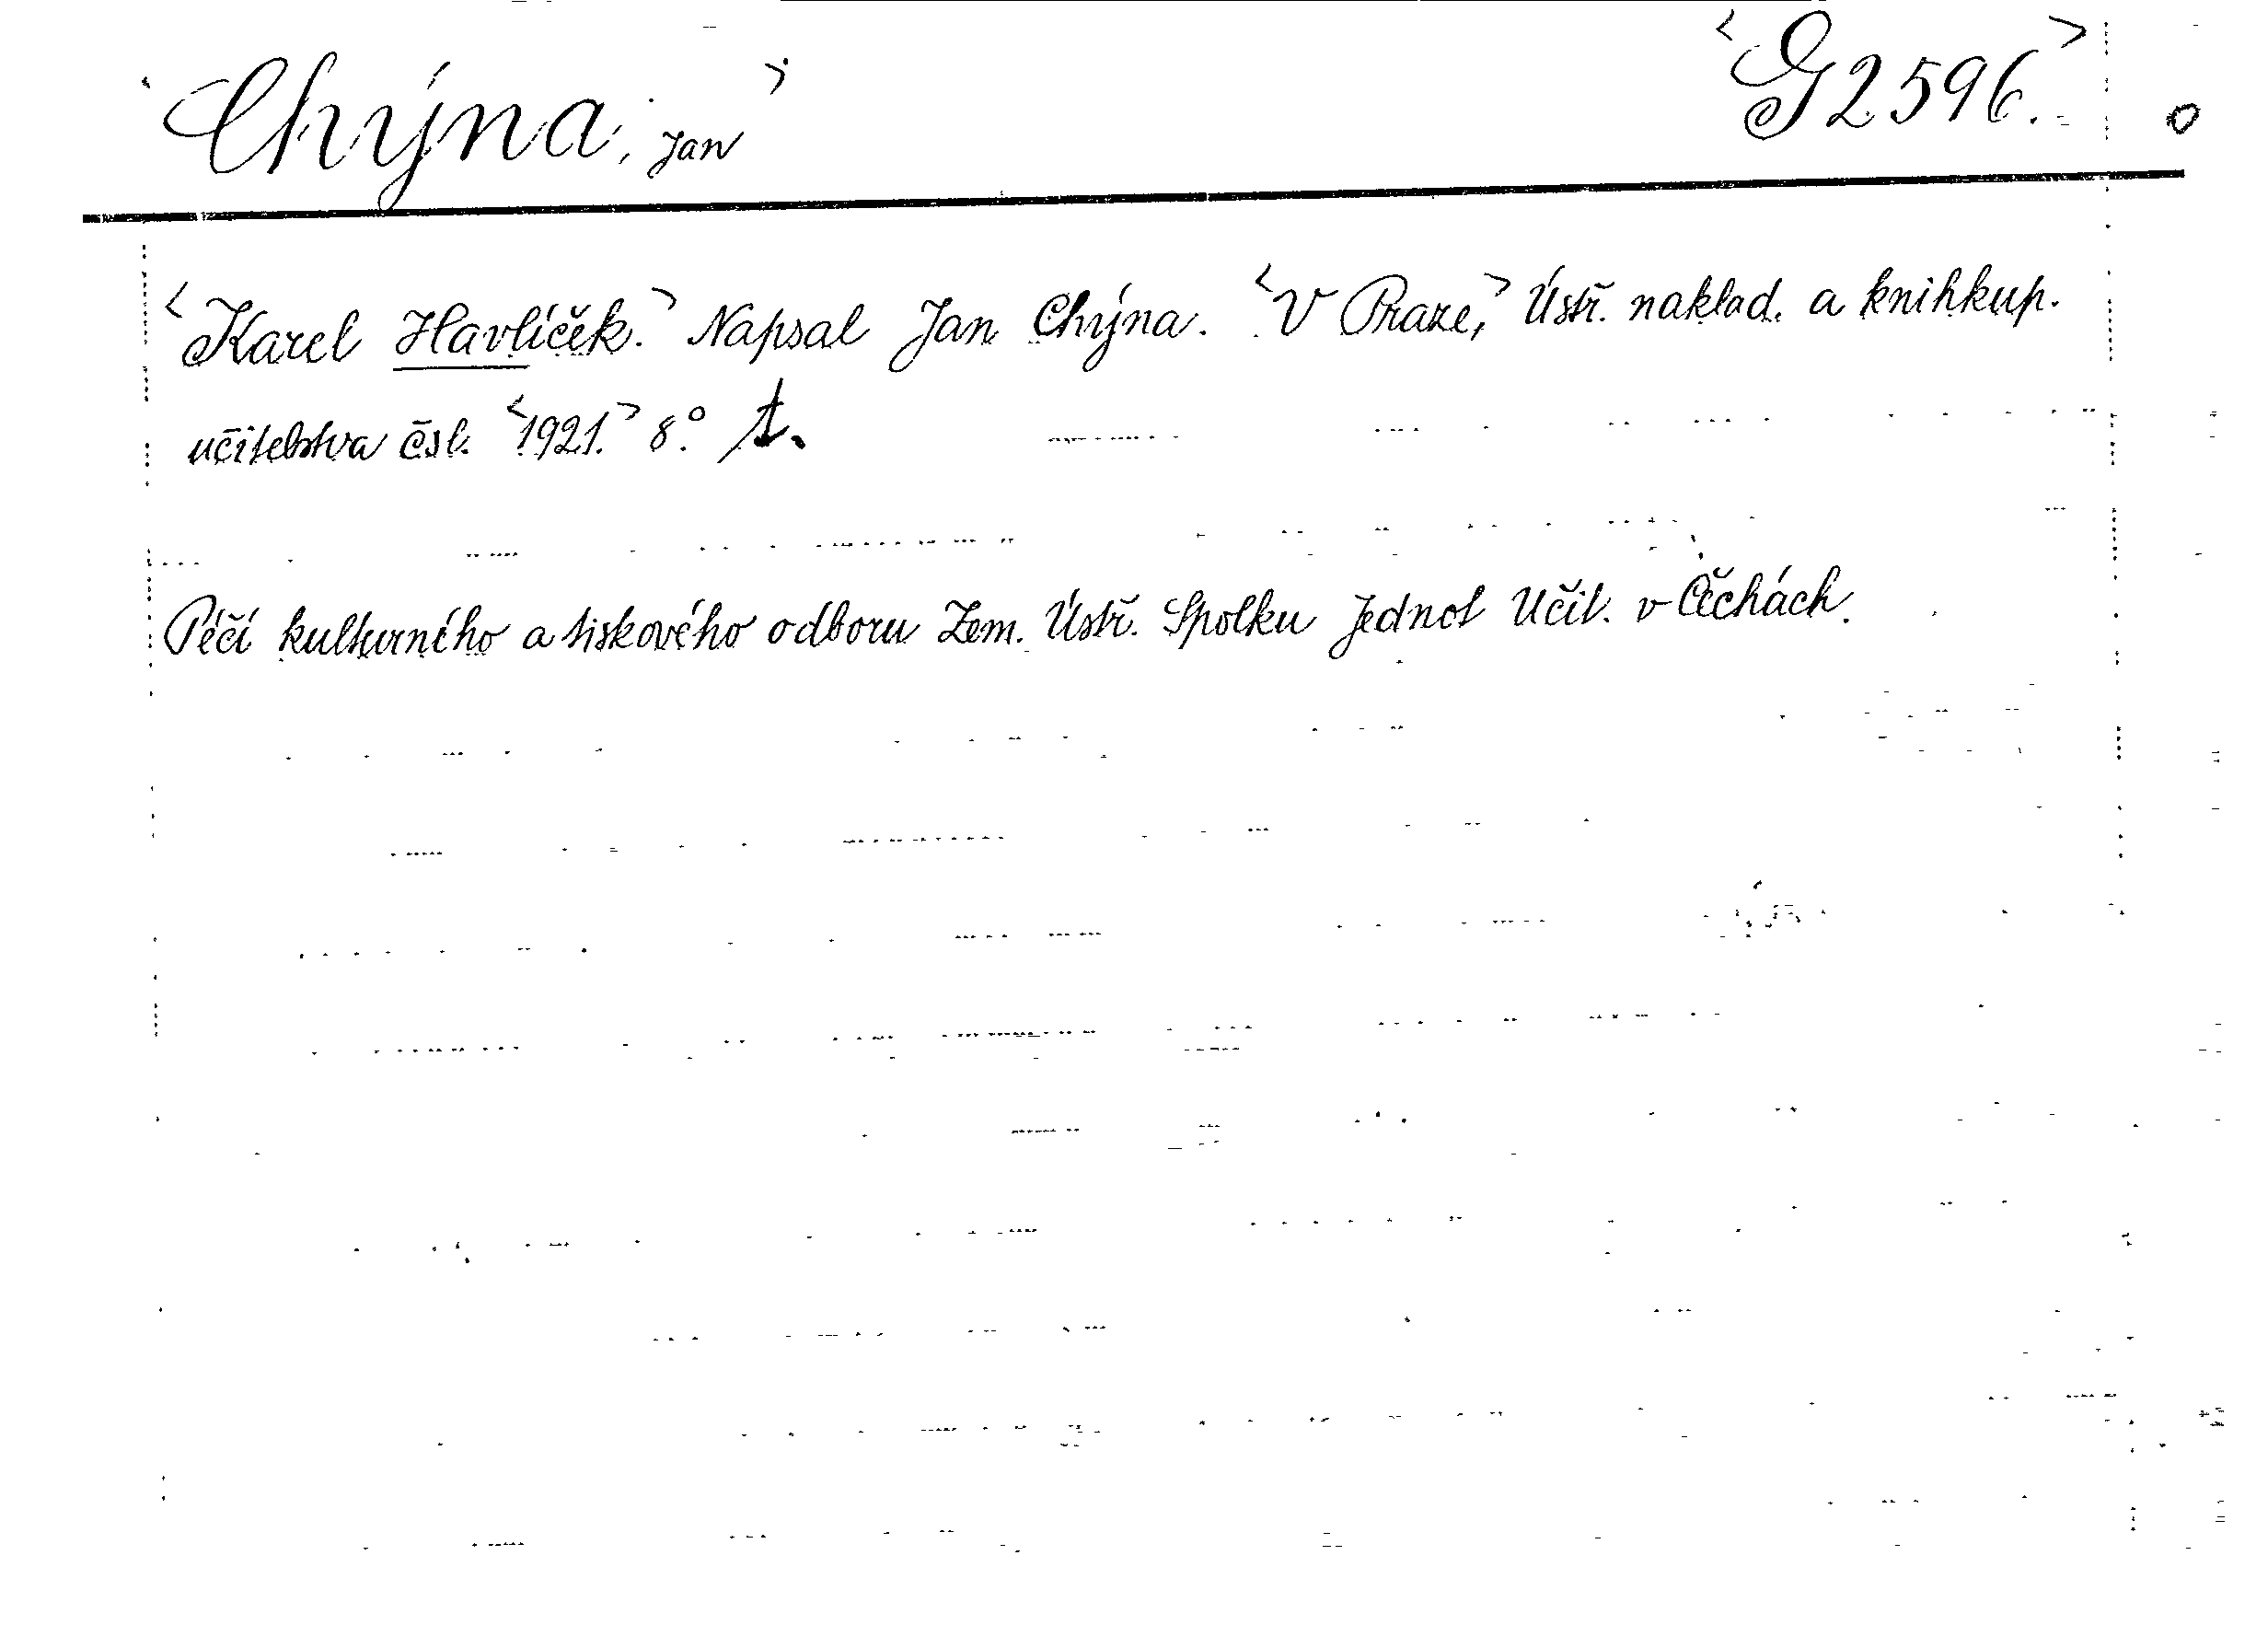 <Chýna, Jan> <G 2596.>
<Karel Havlíček.> Napsal Jan Chýna. <V Praze,> Ústř. naklad. a knihkup.
učitelstva čsl. <1921.> 8.° t.
Péčí kulturního a tiskového odboru Zem. Ústř. Spolku Jednot Učit. v Čechách.